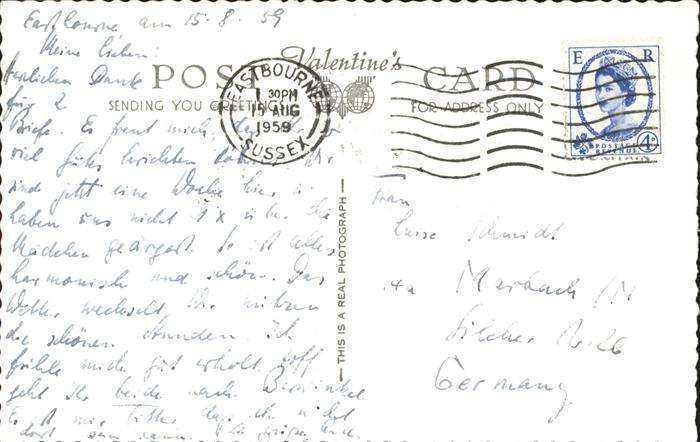 Eastbourne, am 15.8.59
Meine Lieben!
Herzlichen Dank
für 2
Briefe. Es freut mich, daß
viel gutes berichten
sind jetzt eine Woche hier u.
haben uns nicht 1 x über die
Mädchen geärgert. Es ist alles
harmonisch und schön. Das
Wetter wechselt. Wir nützen
die schönen Stunden. Ich
fühle mich gut erholt. Hoff.
geht Ihr beide nach
Es ist mir bitter, daß ich nicht
dort sein kann.
Valentine's
POST CARD
SENDING YOU GREETINGS
FOR ADDRESS ONLY
EASTBOURNE
1 30PM
15 AUG
1959
SUSSEX
E R
POSTAGE
REVENUE
4D
THIS IS A REAL PHOTOGRAPH
Frau
Luise Schmidt
Marbach /N
Germany